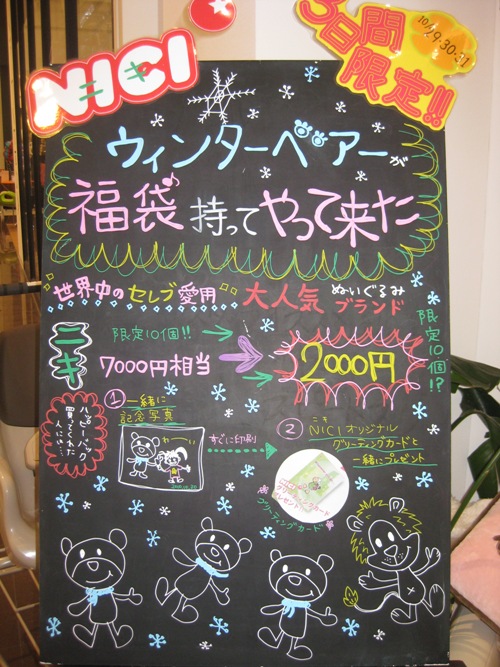 NICI
ニキ
3日間
限定!!
10/29・30・31
ウィンターベアーが
福袋持ってやって来た
世界中のセレブ愛用
大人気
ぬいぐるみ
ブランド
ニキ
限定10個!!
7000円相当
2000円
限定10個!?
ハッピーバック
買ってくれた
人には…
① 一緒に
記念写真
わーい
すぐに印刷
② ニキ
NICIオリジナル
グリーティングカードと
一緒にプレゼント
グリーティングカード